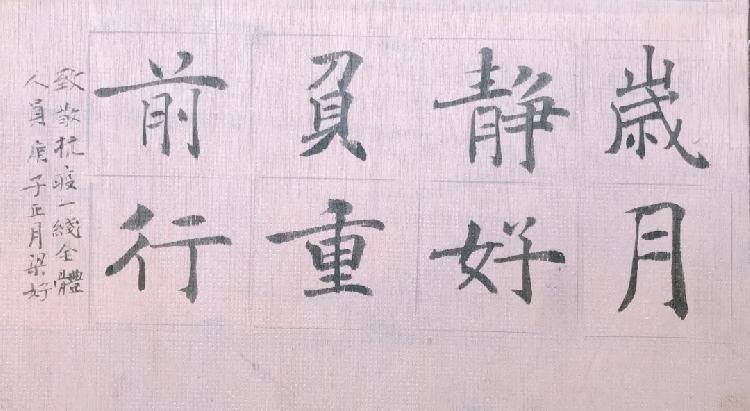 歳月
静好
負重
前行
致敬抗疫一綫全體
人員庚子正月梁好